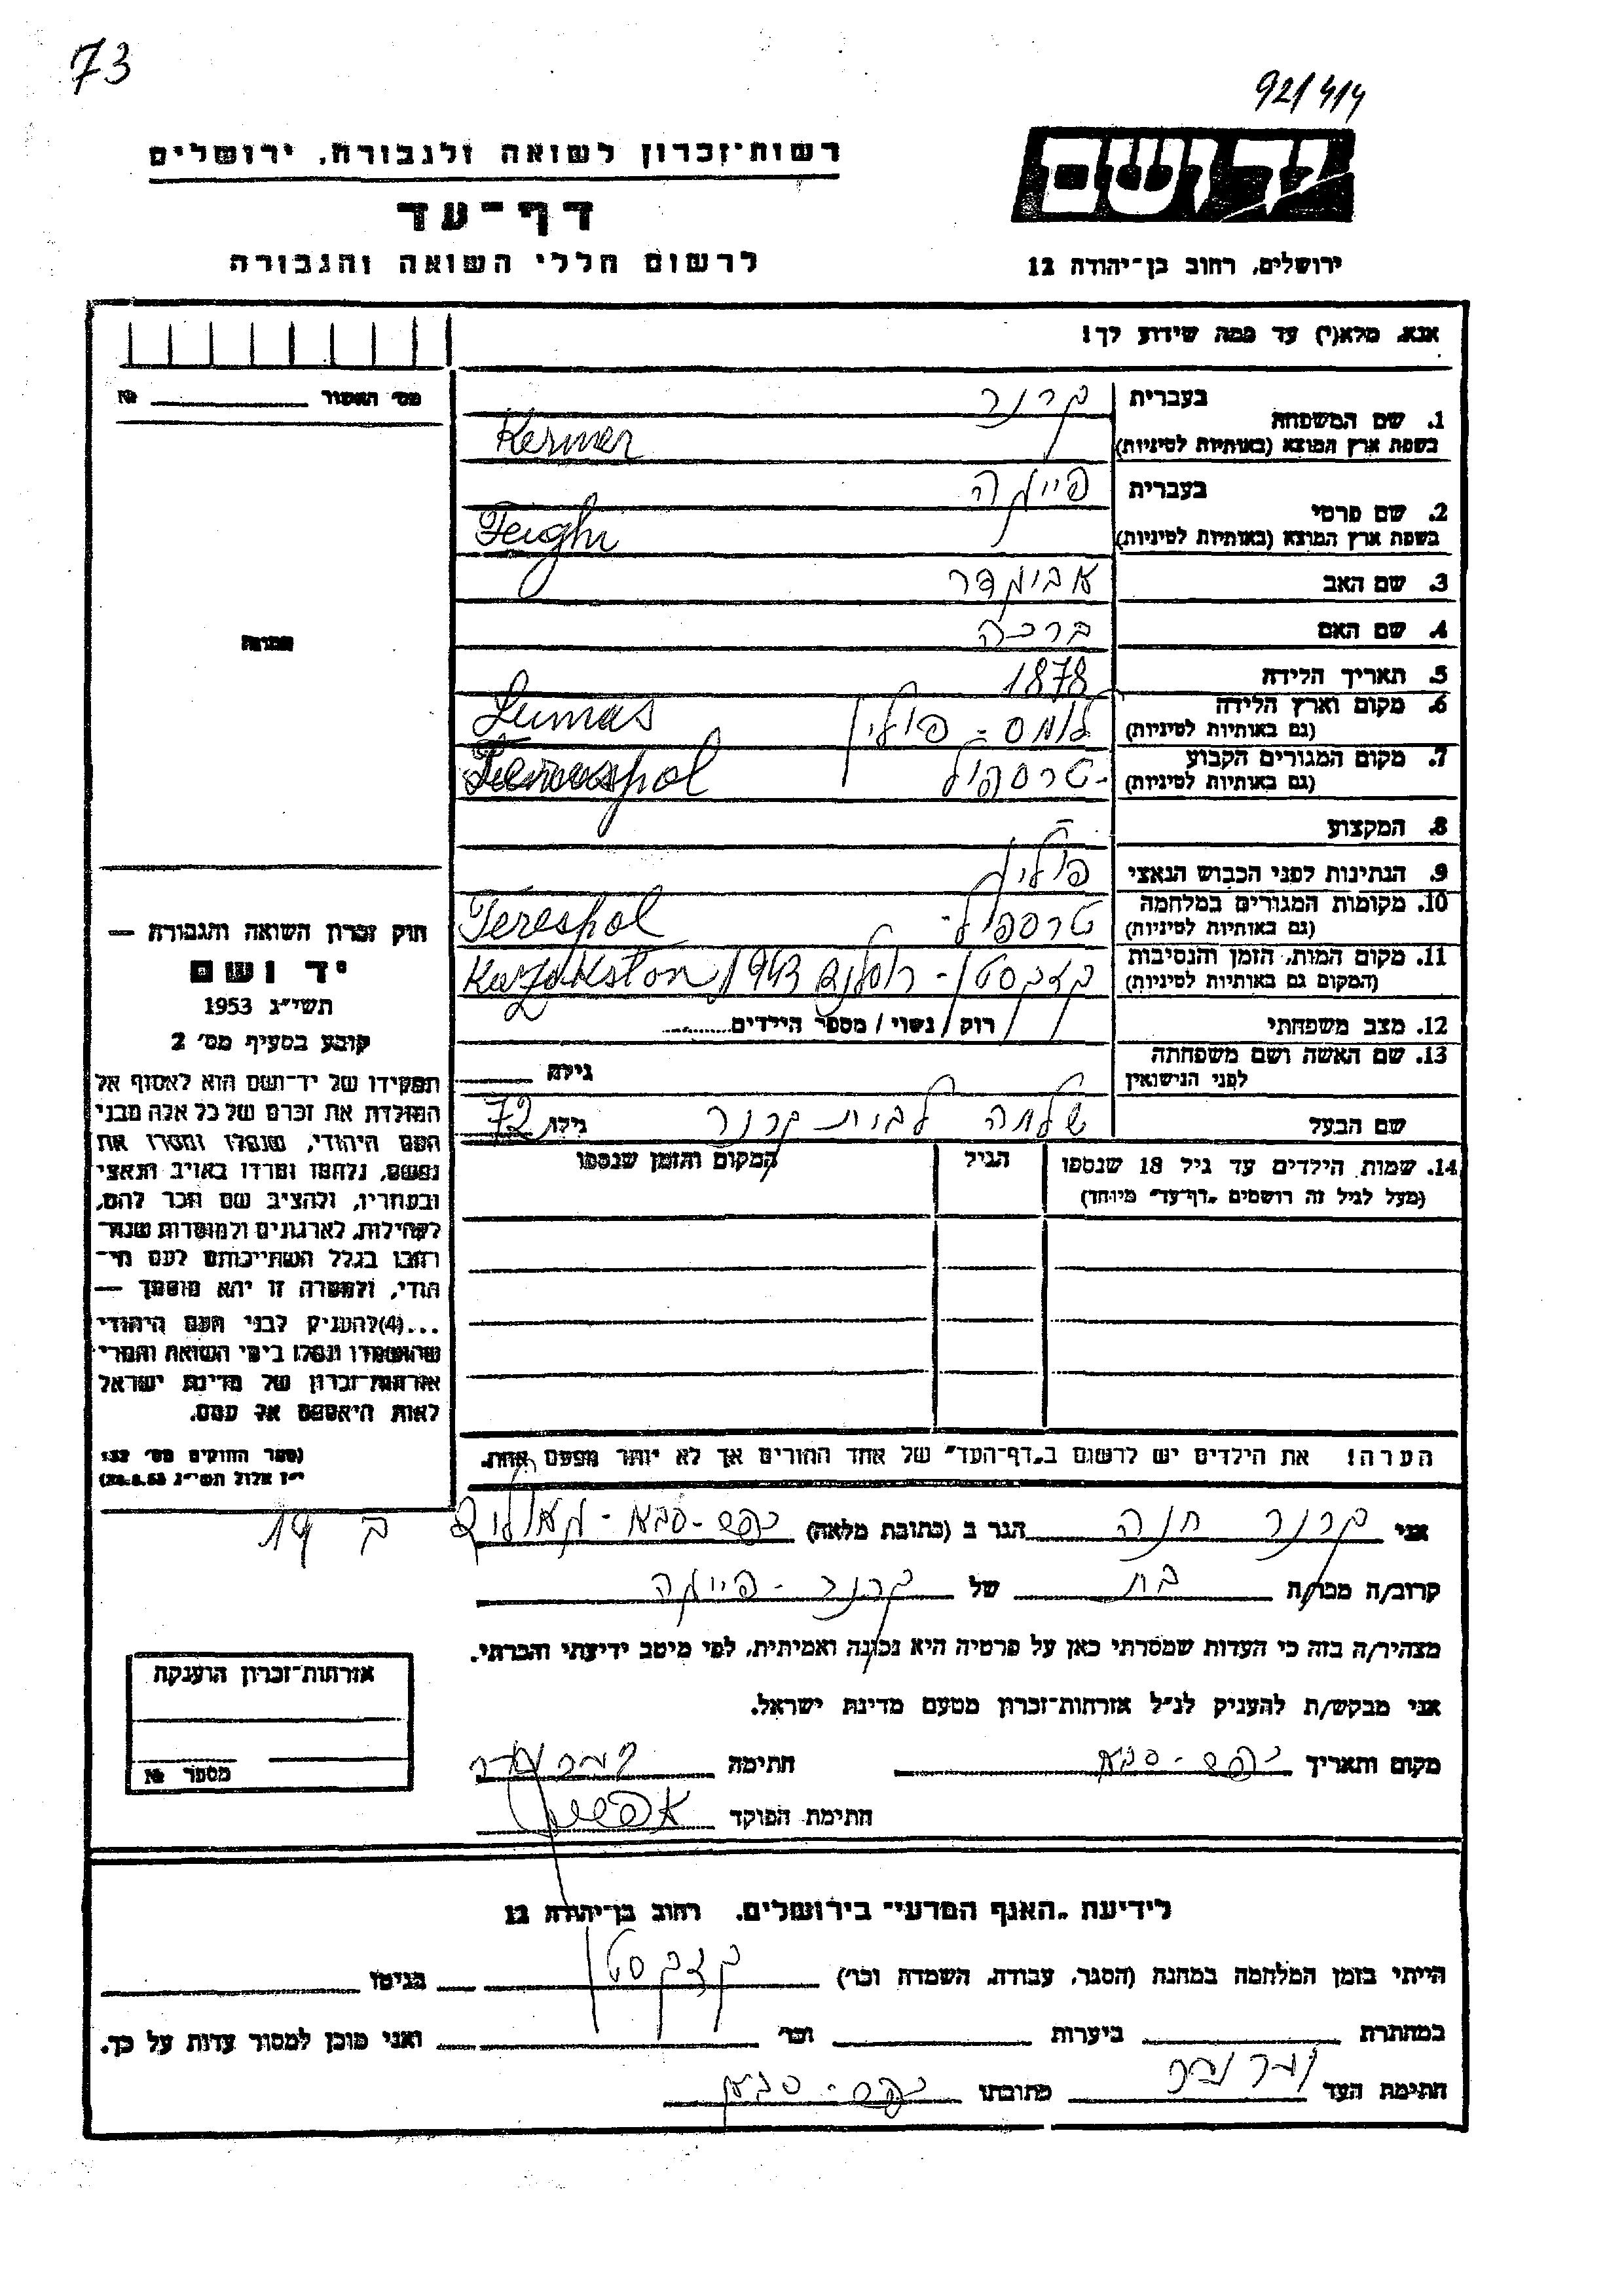 73
92/414
רשות־זכרון לשואה ולגבורה, ירושלים
יד ושם
דף־עד
לרשום חללי השואה והגבורה
ירושלים, רחוב בן־יהודה 12
אנא, מלא(י) עד כמה שידוע לך!
מס׳ האשור № 
1. שם המשפחה בעברית קרנר
בשפת ארץ המוצא (באותיות לטיניות) Kerner
2. שם פרטי בעברית פייגה
בשפת ארץ המוצא (באותיות לטיניות)
3. שם האב אביגדר
4. שם האם ברכה
5. תאריך הלידה 1878
6. מקום וארץ הלידה לומס - פולין Lumas
(גם באותיות לטיניות)
7. מקום המגורים הקבוע טרספול
(גם באותיות לטיניות)
8. המקצוע -
9. הנתינות לפני הכבוש הנאצי פולין
10. מקומות המגורים במלחמה טרספול - Terespol
(גם באותיות לטיניות)
11. מקום המות, הזמן והנסיבות קזקסטן - 1943 Kazakston
(המקום גם באותיות לטיניות)
12. מצב משפחתי רוק / נשוי / מספר הילדים
13. שם האשה ושם משפחתה
לפני הנישואין גילה
שם הבעל שלמה קרנר גילו 72
14. שמות הילדים עד גיל 18 שנספו הגיל המקום והזמן שנספו
(מעל לגיל זה רושמים „דף־עד״ מיוחד)
הערה! את הילדים יש לרשום ב„דף־העד״ של אחד ההורים אך לא יותר מפעם אחת.
תמונה
חוק זכרון השואה והגבורה —
יד ושם
תשי״ג 1953
קובע בסעיף מס׳ 2
תפקידו של יד־ושם הוא לאסוף אל
המולדת את זכרם של כל אלה מבני
העם היהודי, שנפלו ומסרו את
נפשם, נלחמו ומרדו באויב הנאצי
ובעוזריו, ולהציב שם וזכר להם,
לקהילות, לארגונים ולמוסדות שנח־
רבו בגלל השתייכותם לעם הי־
הודי, ולמטרה זו יהא מוסמך —
...(4)להעניק לבני העם היהודי
שהושמדו ונפלו בימי השואה והמרי
אזרחות־זכרון של מדינת ישראל
לאות היאספם אל עמם.
(ספר החוקים מס׳ 132
י״ז אלול תשי״ג 28.8.53)
אני קרנר חנה הגר ב (כתובת מלאה) כפר-סבא -
קרוב/ה מכר/ה בת של קרנר - פייגה
מצהיר/ה בזה כי העדות שמסרתי כאן על פרטיה היא נכונה ואמיתית, לפי מיטב ידיעתי והכרתי.
אני מבקש/ת להעניק לנ״ל אזרחות־זכרון מטעם מדינת ישראל.
מקום ותאריך כפר-סבא חתימה
חתימת הפוקד
אזרחות־זכרון הוענקה
מספר №
לידיעת „האגף המדעי״ בירושלים, רחוב בן־יהודה 12
הייתי בזמן המלחמה במחנה (הסגר, עבודה, השמדה וכו׳) קזקסטן בגיטו
במחתרת ביערות וכו׳ ואני מוכן למסור עדות על כך.
חתימת העד כתובתו כפר-סבא